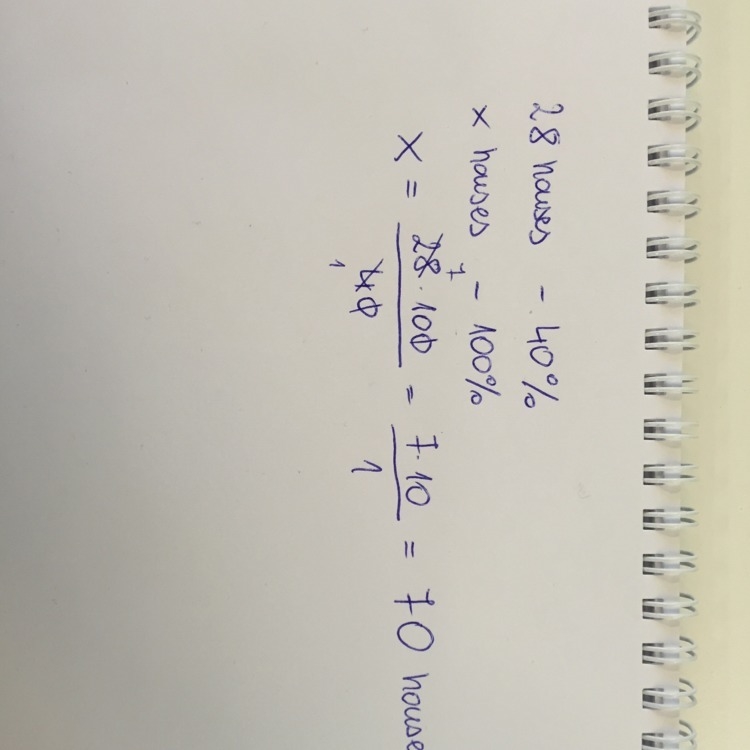 28 houses - 40%
x houses - 100%
x = 28 7 · 100 / 40 1 = 7·10 / 1 = 70 house